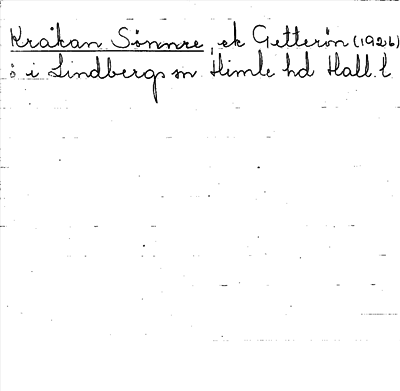 Kråkan Sönnre, ek Getterön (1926)
ö i Lindbergs sn Himle hd Hall. l